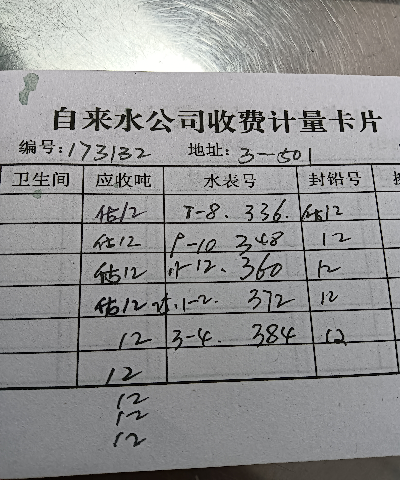 自来水公司收费计量卡片
编号:173132 地址:3-501
卫生间 应收吨 水表号 封铅号
估12 7-8. 336. 估12
估12 9-10 348 12
估12 11-12. 360 12
估12 1-2. 372 12
12 3-4. 384 12
12
12
12
12